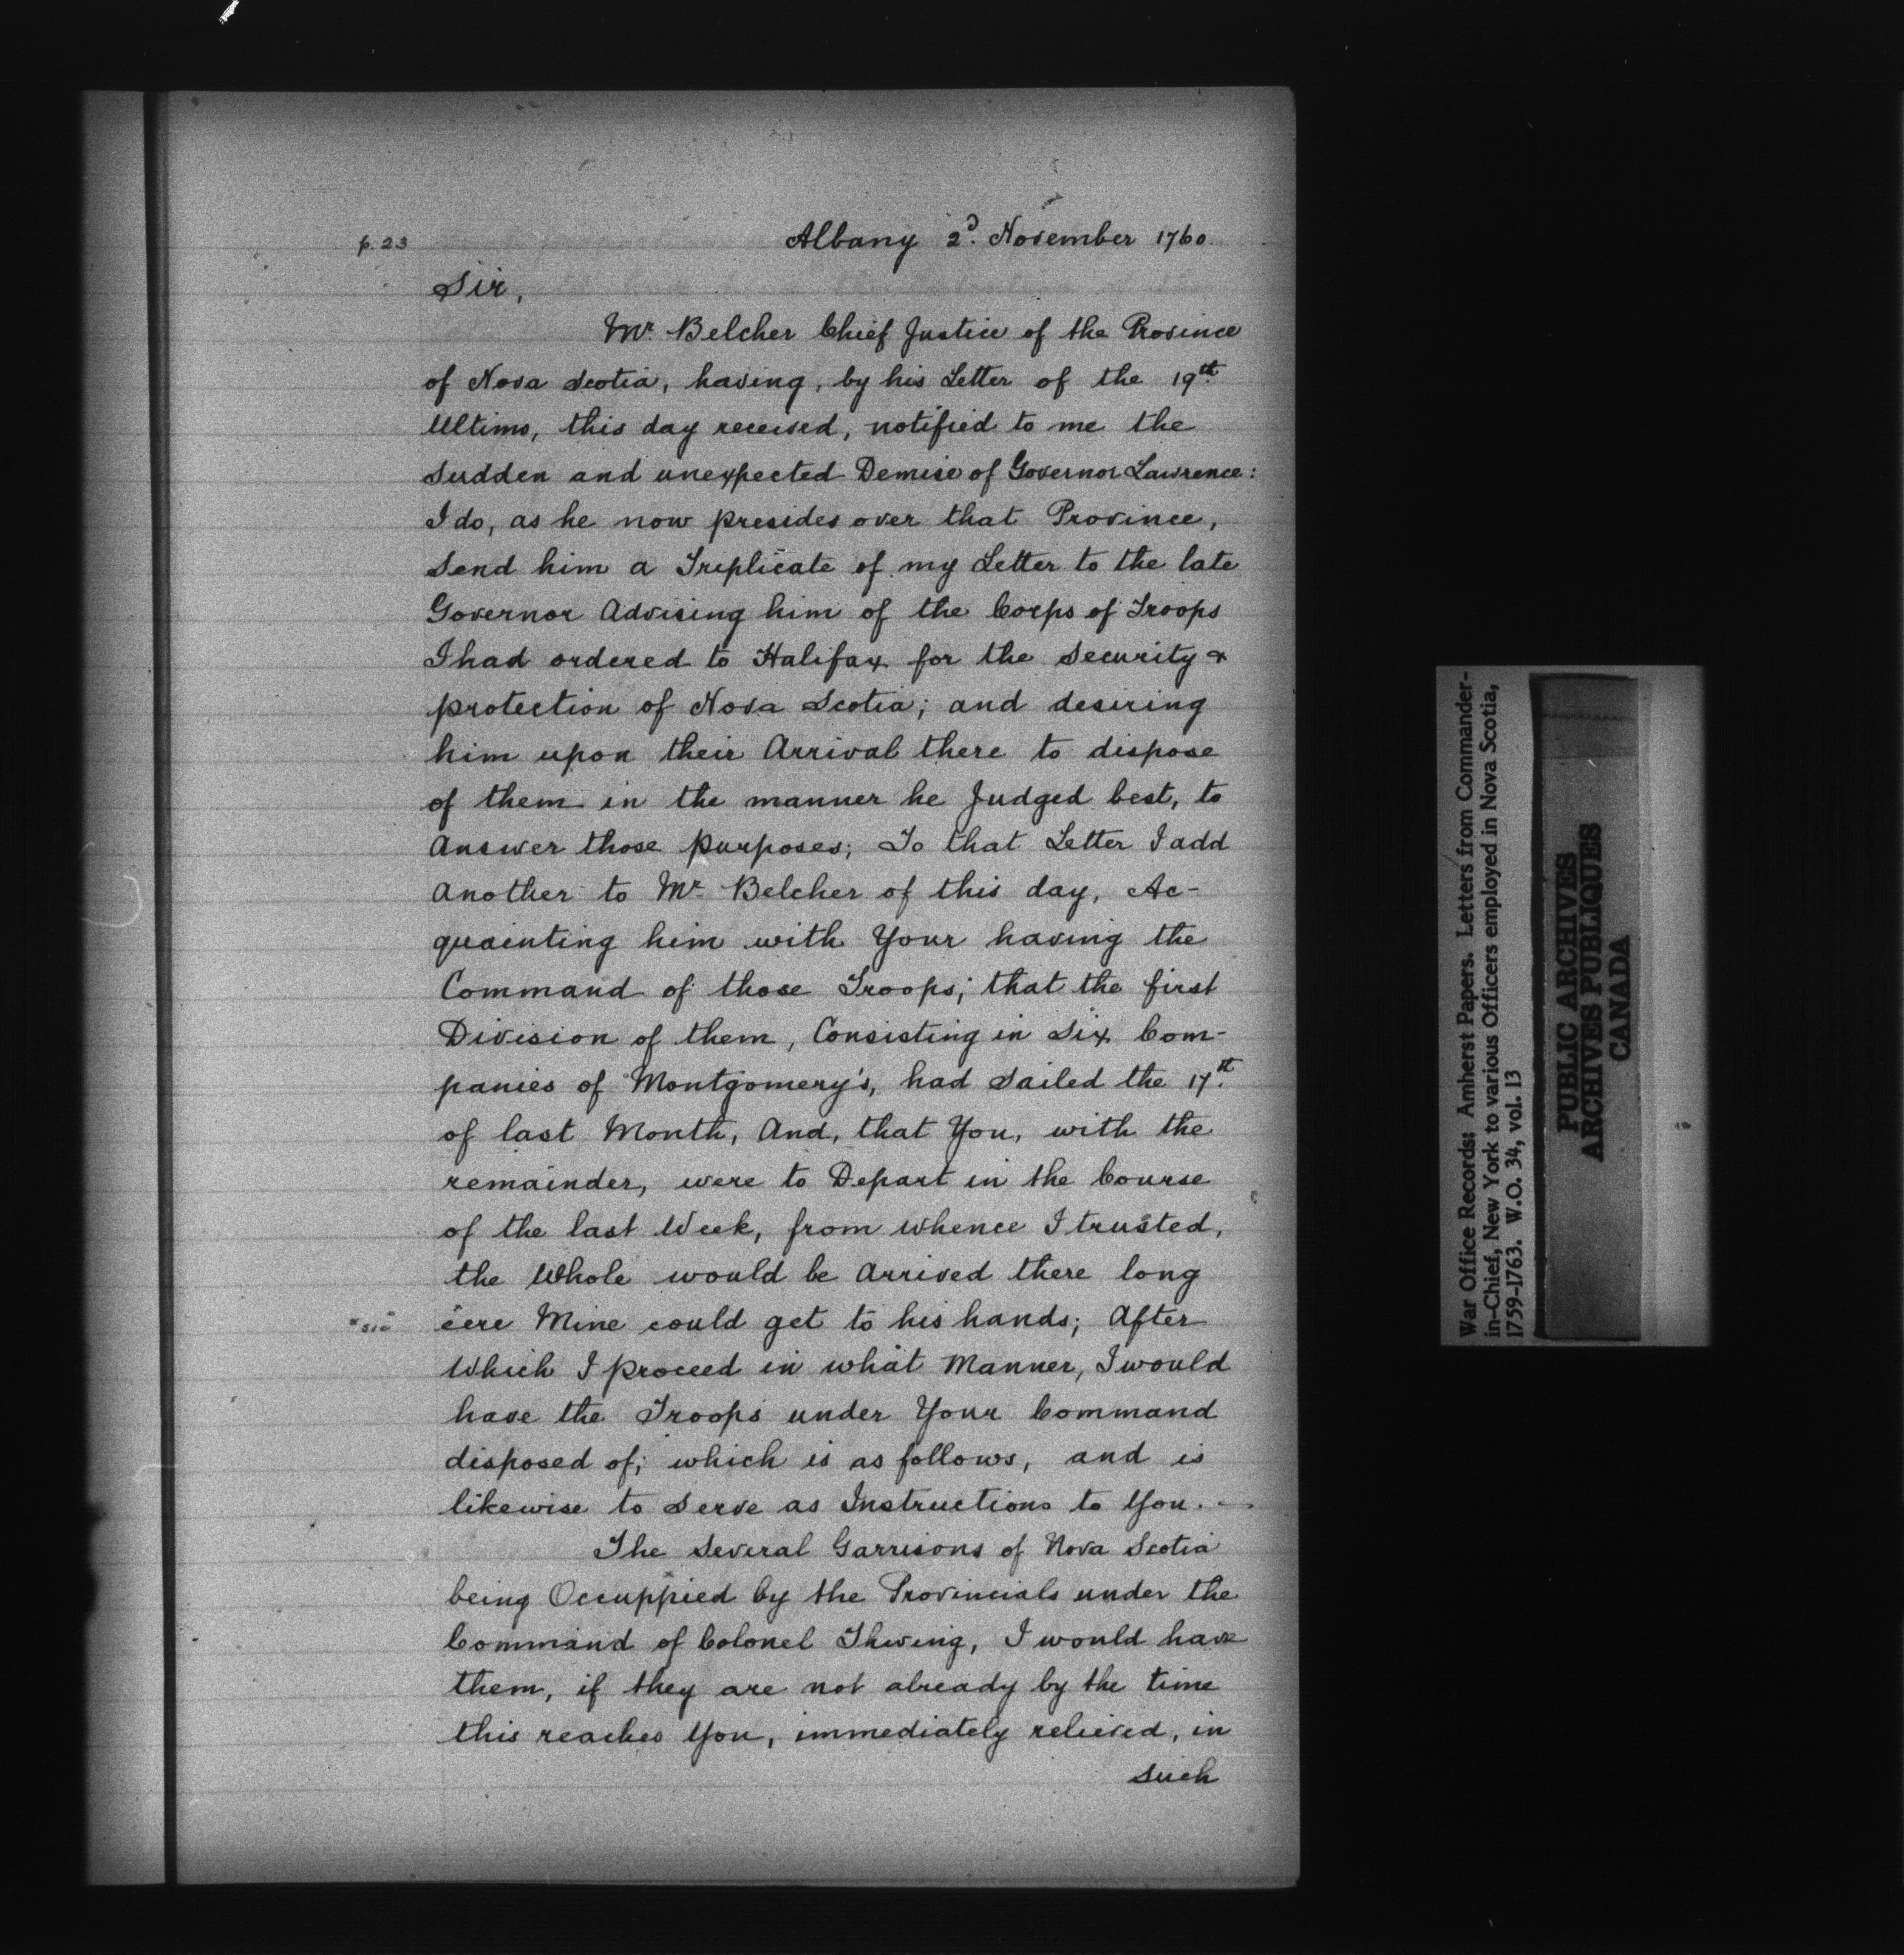 p. 23
Albany 2d. November 1760.
Sir,
Mr. Belcher Chief Justice of the Province
of Nova Scotia, having, by his Letter of the 19th.
Ultimo, this day received, notified to me the
Sudden and unexpected Demise of Governor Lawrence:
I do, as he now presides over that Province,
Send him a Triplicate of my Letter to the late
Governor Advising him of the Corps of Troops
I had ordered to Halifax for the Security &
protection of Nova Scotia; and desiring
him upon their Arrival there to dispose
of them in the manner he Judged best, to
Answer those purposes; To that Letter I add
Another to Mr. Belcher of this day, Ac-
quainting him with Your having the
Command of those Troops; that the first
Division of them, Consisting in Six Com-
panies of Montgomery's, had Sailed the 17th.
of last Month, And, that You, with the
remainder, were to Depart in the Course
of the last Week, from whence I trusted,
the Whole would be Arrived there long
*sic
eere Mine could get to his hands; After
Which I proceed in what Manner, I would
have the Troops under Your Command
disposed of; which is as follows, and is
likewise to Serve as Instructions to You. -
The Several Garrisons of Nova Scotia
being Occuppied by the Provincials under the
Command of Colonel Thwing, I would have
them, if they are not already by the time
this reaches You, immediately relieved, in
Such
War Office Records: Amherst Papers. Letters from Commander-
in-Chief, New York to various Officers employed in Nova Scotia,
1759-1763. W.O. 34, vol. 13
PUBLIC ARCHIVES
ARCHIVES PUBLIQUES
CANADA